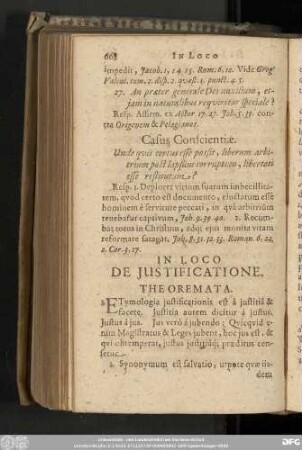 668 IN LOCO
impedit, Jacob. 1, 14. 15. Rom. 6. 12. Vide Greg
Valent. tom. 2. disp. 2. quæst. 1. punct. 4. 5.
27. An præter generale Dei auxilium, et-
jam in naturalibus requiratur speciale?
Resp. Affirm. ex Actor 17. 27. Job. 5. 33. con-
tra Origenem & Pelagianos.
Casus Conscientiæ.
Unde quis certus esse possit, liberum arbi-
trium post lapsum corruptum, libertati
esse restitutum?
Resp. 1. Deploret vicium suarum imbecillita-
tem, quod certo est documento, eluctatum esse
hominem è servitute peccati, in quâ arbitrium
tenebatur captivum, Joh. 9. 39. 40. 2. Recum-
bat totus in Christum, adq; ejus monita vitam
reformare satagat, Joh. 8. 31. 32. 33. Roman. 6. 22,
2. Cor. 3. 17.
IN LOCO
DE JUSTIFICATIONE,
THEOREMATA.
1. ETymologia justificationis est â justitiâ &
facere. Justitia autem dicitur â justus.
Justus â jus. Jus verò à jubendo; Quicquid
enim Magistratus & Leges jubent, hoc jus est, &
qui obtemperat, justus justitiâq; præditus cen-
setur.
2. Synonymum est salvatio, utpote quæ iis-
dem